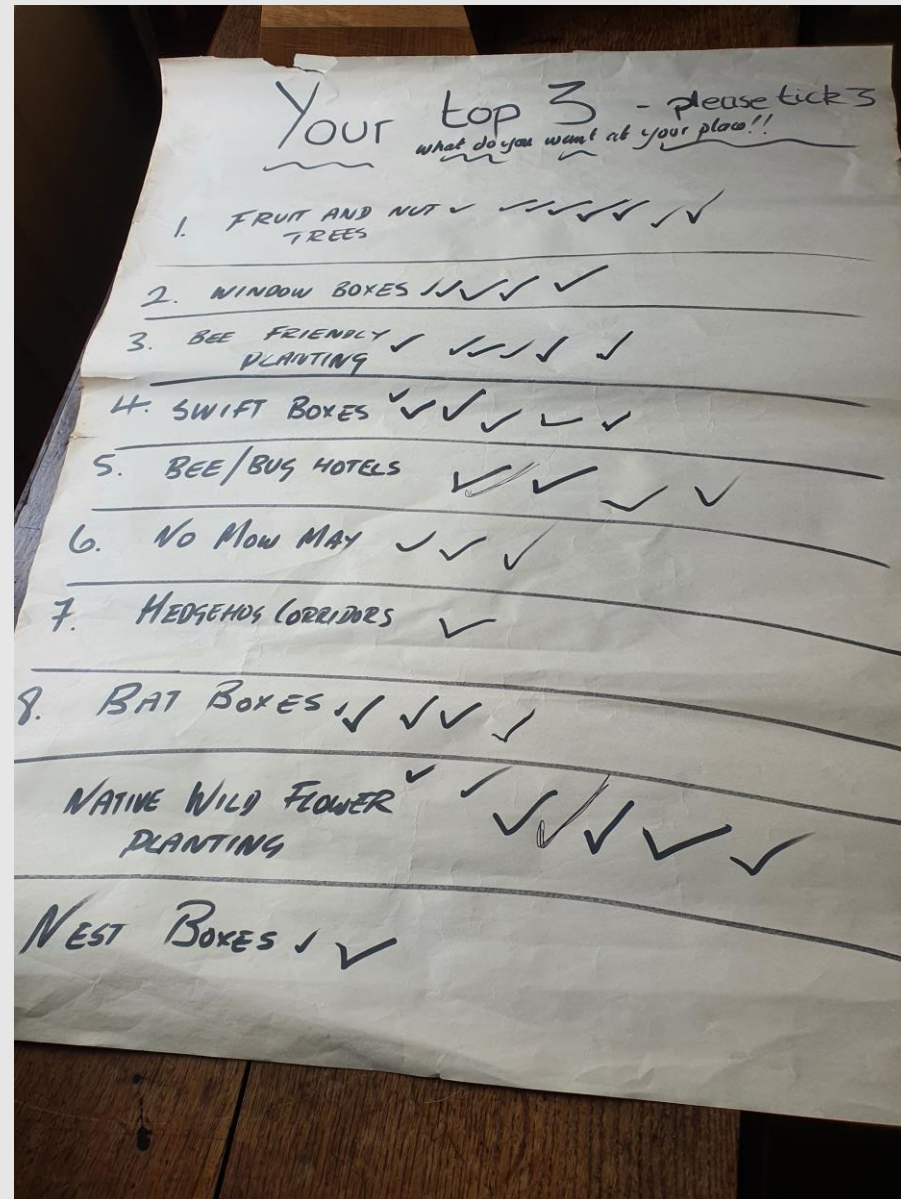 Your top 3 - please tick 3
what do you want at your place!!
1. FRUIT AND NUT
TREES
2. WINDOW BOXES
3. BEE FRIENDLY
PLANTING
4. SWIFT BOXES
5. BEE/BUG HOTELS
6. NO MOW MAY
7. HEDGEHOG CORRIDORS
8. BAT BOXES
NATIVE WILD FLOWER
PLANTING
NEST BOXES